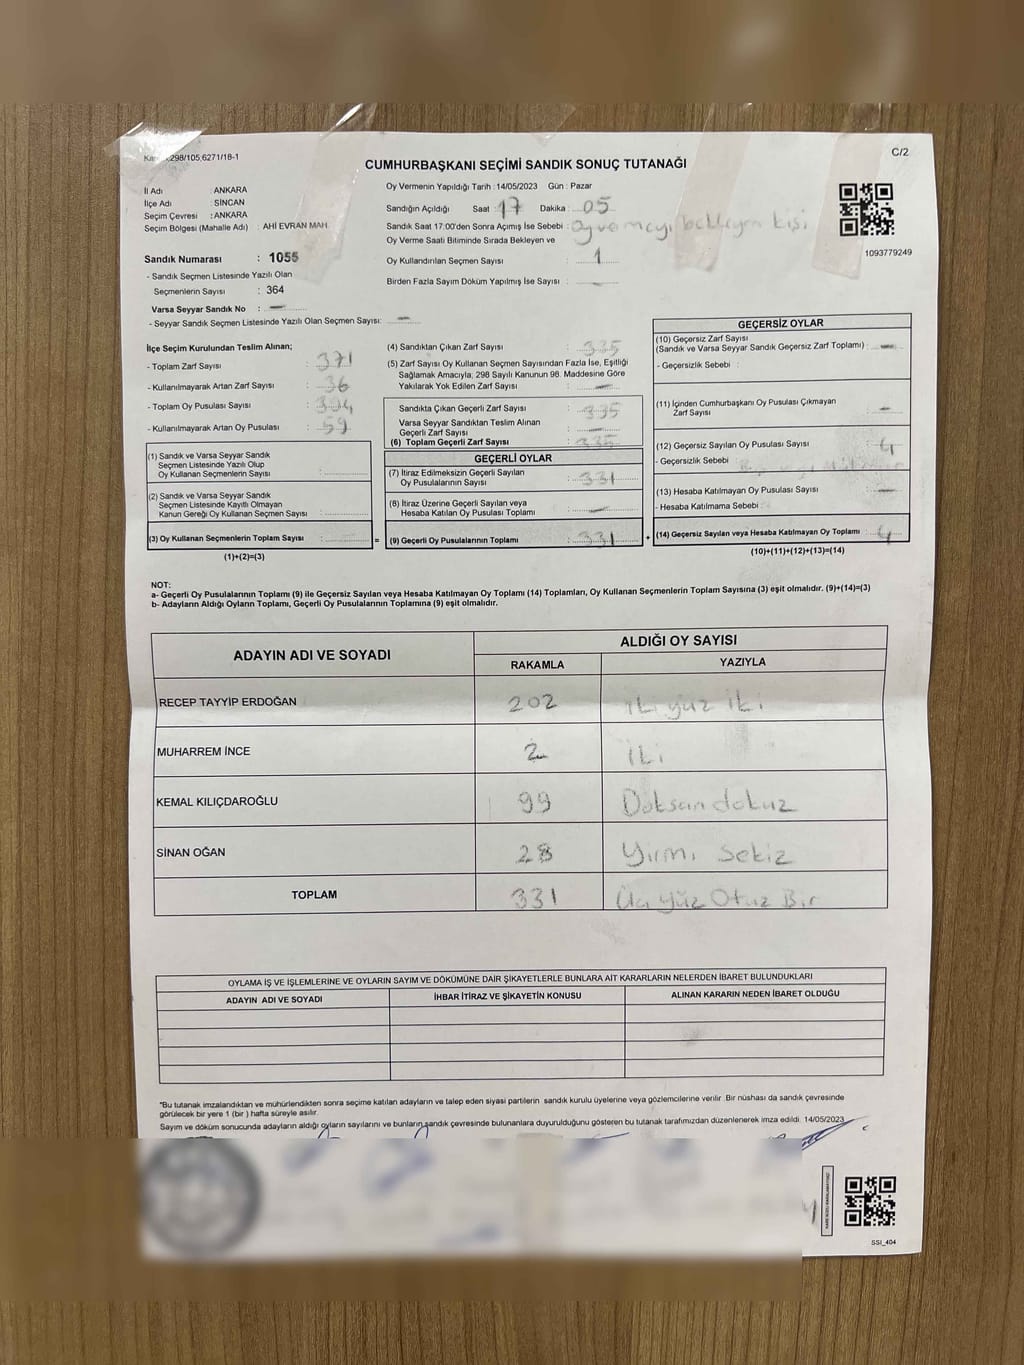 298/105;6271/18-1
C/2
CUMHURBAŞKANI SEÇİMİ SANDIK SONUÇ TUTANAĞI
İl Adı : ANKARA
İlçe Adı : SİNCAN
Seçim Çevresi : ANKARA
Seçim Bölgesi (Mahalle Adı) : AHİ EVRAN MAH
Oy Vermenin Yapıldığı Tarih : 14/05/2023 Gün : Pazar
Sandığın Açıldığı Saat : 17 Dakika : 05
Sandık Saat 17:00'den Sonra Açımış İse Sebebi : Oy vermeyi bekleyen kişi
Oy Verme Saati Bitiminde Sırada Bekleyen ve
Oy Kullandırılan Seçmen Sayısı : 1
Birden Fazla Sayım Döküm Yapılmış İse Sayısı : —
1093779249
Sandık Numarası : 1055
- Sandık Seçmen Listesinde Yazılı Olan
Seçmenlerin Sayısı : 364
Varsa Seyyar Sandık No : —
- Seyyar Sandık Seçmen Listesinde Yazılı Olan Seçmen Sayısı: —
İlçe Seçim Kurulundan Teslim Alınan;
- Toplam Zarf Sayısı : 371
- Kullanılmayarak Artan Zarf Sayısı : 36
- Toplam Oy Pusulası Sayısı :
- Kullanılmayarak Artan Oy Pusulası : 59
(1) Sandık ve Varsa Seyyar Sandık
Seçmen Listesinde Yazılı Olup
Oy Kullanan Seçmenlerin Sayısı :
(2) Sandık ve Varsa Seyyar Sandık
Seçmen Listesinde Kayıtlı Olmayan
Kanun Gereği Oy Kullanan Seçmen Sayısı :
(3) Oy Kullanan Seçmenlerin Toplam Sayısı :
(1)+(2)=(3)
(4) Sandıktan Çıkan Zarf Sayısı : 335
(5) Zarf Sayısı Oy Kullanan Seçmen Sayısından Fazla İse, Eşitliği
Sağlamak Amacıyla; 298 Sayılı Kanunun 98. Maddesine Göre
Yakılarak Yok Edilen Zarf Sayısı : —
Sandıkta Çıkan Geçerli Zarf Sayısı : 335
Varsa Seyyar Sandıktan Teslim Alınan
Geçerli Zarf Sayısı : —
(6) Toplam Geçerli Zarf Sayısı : 335
GEÇERLİ OYLAR
(7) İtiraz Edilmeksizin Geçerli Sayılan
Oy Pusulalarının Sayısı : 331
(8) İtiraz Üzerine Geçerli Sayılan veya
Hesaba Katılan Oy Pusulası Toplamı : —
= (9) Geçerli Oy Pusulalarının Toplamı : 331
GEÇERSİZ OYLAR
(10) Geçersiz Zarf Sayısı
(Sandık ve Varsa Seyyar Sandık Geçersiz Zarf Toplamı) : —
- Geçersizlik Sebebi :
(11) İçinden Cumhurbaşkanı Oy Pusulası Çıkmayan
Zarf Sayısı : —
(12) Geçersiz Sayılan Oy Pusulası Sayısı : 4
- Geçersizlik Sebebi
(13) Hesaba Katılmayan Oy Pusulası Sayısı : —
- Hesaba Katılmama Sebebi :
+ (14) Geçersiz Sayılan veya Hesaba Katılmayan Oy Toplamı : 4
(10)+(11)+(12)+(13)=(14)
NOT:
a- Geçerli Oy Pusulalarının Toplamı (9) ile Geçersiz Sayılan veya Hesaba Katılmayan Oy Toplamı (14) Toplamları, Oy Kullanan Seçmenlerin Toplam Sayısına (3) eşit olmalıdır. (9)+(14)=(3)
b- Adayların Aldığı Oyların Toplamı, Geçerli Oy Pusulalarının Toplamına (9) eşit olmalıdır.
ADAYIN ADI VE SOYADI
ALDIĞI OY SAYISI
RAKAMLA YAZIYLA
RECEP TAYYİP ERDOĞAN 202 İki yüz iki
MUHARREM İNCE 2 İki
KEMAL KILIÇDAROĞLU 99 Doksan dokuz
SİNAN OĞAN 28 Yirmi Sekiz
TOPLAM 331 Üç yüz Otuz Bir
OYLAMA İŞ VE İŞLEMLERİNE VE OYLARIN SAYIM VE DÖKÜMÜNE DAİR ŞİKAYETLERLE BUNLARA AİT KARARLARIN NELERDEN İBARET BULUNDUKLARI
ADAYIN ADI VE SOYADI İHBAR İTİRAZ VE ŞİKAYETİN KONUSU ALINAN KARARIN NEDEN İBARET OLDUĞU
*Bu tutanak imzalandıktan ve mühürlendikten sonra seçime katılan adayların ve talep eden siyasi partilerin sandık kurulu üyelerine veya gözlemcilerine verilir. Bir nüshası da sandık çevresinde
görülecek bir yere 1 (bir ) hafta süreyle asılır.
Sayım ve döküm sonucunda adayların aldığı oyların sayılarını ve bunların sandık çevresinde bulunanlara duyurulduğunu gösteren bu tutanak tarafımızdan düzenlenerek imza edildi. 14/05/2023
SSI_404